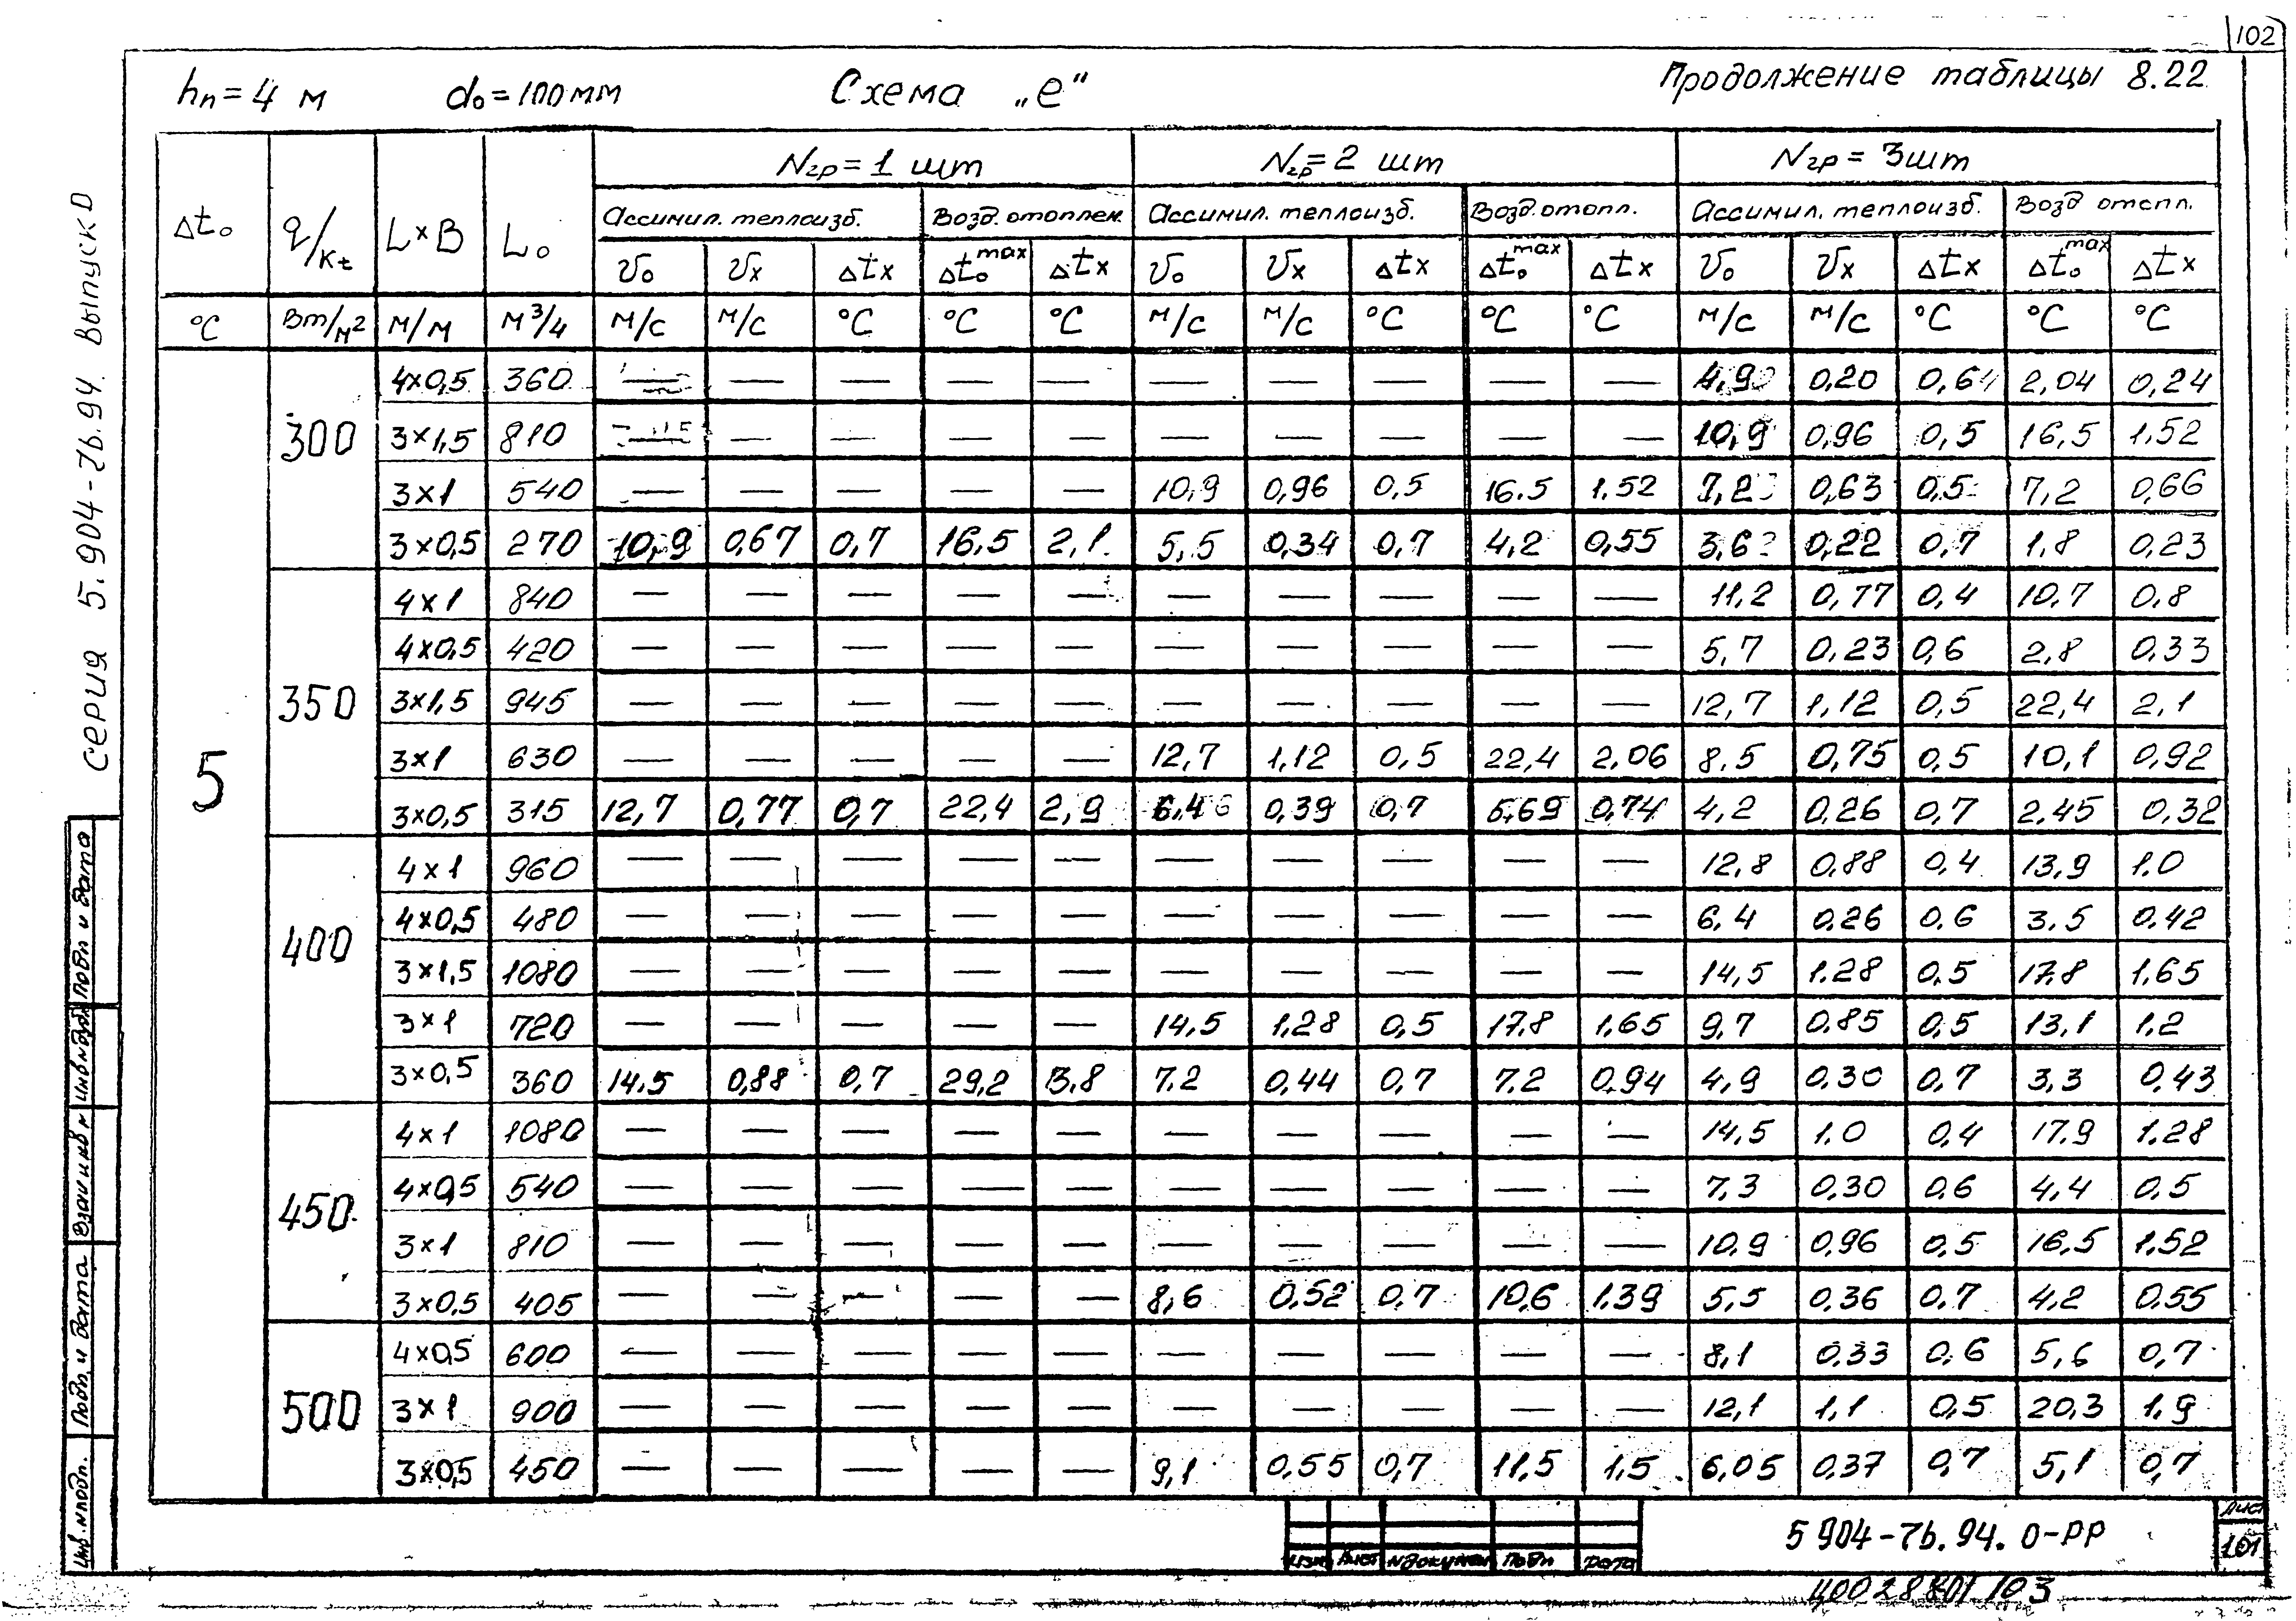 102
hп = 4 м d₀ = 100 мм Схема „е" Продолжение таблицы 8.22
Серия 5.904-7в.94 Выпуск 0
Δt₀ q/Kt L×B L₀ Nгр = 1 шт Nгр = 2 шт Nгр = 3 шт
Ассимил. теплоизб. Возд. отоплен. Ассимил. теплоизб. Возд. отопл. Ассимил. теплоизб. Возд отопл.
v₀ vх Δtх Δt₀max Δtх v₀ vх Δtх Δt₀max Δtх v₀ vх Δtх Δt₀max Δtх
°C Вт/м² м/м м³/ч м/с м/с °C °C °C м/с м/с °C °C °C м/с м/с °C °C °C
5
300
4×0,5 360 — — — — — — — — — — 4,9 0,20 0,64 2,04 0,24
3×1,5 810 — — — — — — — — — — 10,9 0,96 0,5 16,5 1,52
3×1 540 — — — — — 10,9 0,96 0,5 16.5 1.52 7,2 0,63 0,5 7,2 0,66
3×0,5 270 10,9 0,67 0,7 16,5 2,1 5,5 0,34 0,7 4,2 0,55 3,6 0,22 0,7 1,8 0,23
350
4×1 840 — — — — — — — — — — 11,2 0,77 0,4 10,7 0,8
4×0,5 420 — — — — — — — — — — 5,7 0,23 0,6 2,8 0,33
3×1,5 945 — — — — — — — — — — 12,7 1,12 0,5 22,4 2,1
3×1 630 — — — — — 12,7 1,12 0,5 22,4 2,06 8,5 0,75 0,5 10,1 0,92
3×0,5 315 12,7 0,77 0,7 22,4 2,9 6,4 0,39 0,7 5,69 0,74 4,2 0,26 0,7 2,45 0,32
400
4×1 960 — — — — — — — — — — 12,8 0,88 0,4 13,9 1.0
4×0,5 480 — — — — — — — — — — 6,4 0,26 0,6 3,5 0,42
3×1,5 1080 — — — — — — — — — — 14,5 1.28 0,5 17.8 1,65
3×1 720 — — — — — 14,5 1,28 0,5 17,8 1,65 9,7 0,85 0,5 13,1 1,2
3×0,5 360 14.5 0,88 0,7 29,2 3,8 7.2 0,44 0,7 7.2 0,94 4,9 0,30 0,7 3,3 0,43
450
4×1 1080 — — — — — — — — — — 14,5 1.0 0,4 17.9 1.28
4×0,5 540 — — — — — — — — — — 7,3 0,30 0,6 4,4 0,5
3×1 810 — — — — — — — — — — 10.9 0,96 0,5 16,5 1,52
3×0,5 405 — — — — — 8,6 0,52 0,7 10,6 1.39 5,5 0,36 0,7 4,2 0,55
500
4×0,5 600 — — — — — — — — — — 8,1 0,33 0,6 5,6 0,7
3×1 900 — — — — — — — — — — 12,1 1,1 0,5 20,3 1,9
3×0,5 450 — — — — — 9,1 0,55 0,7 11,5 1,5 6,05 0,37 0,7 5,1 0,7
Подп и дата
Инв № дубл
Взам инв №
Подп. и дата
Инв. № подп.
Изм Лист № докумен Подп Дата
5 904-7в.94. 0-РР
Лист
101
Ц00288-01 103